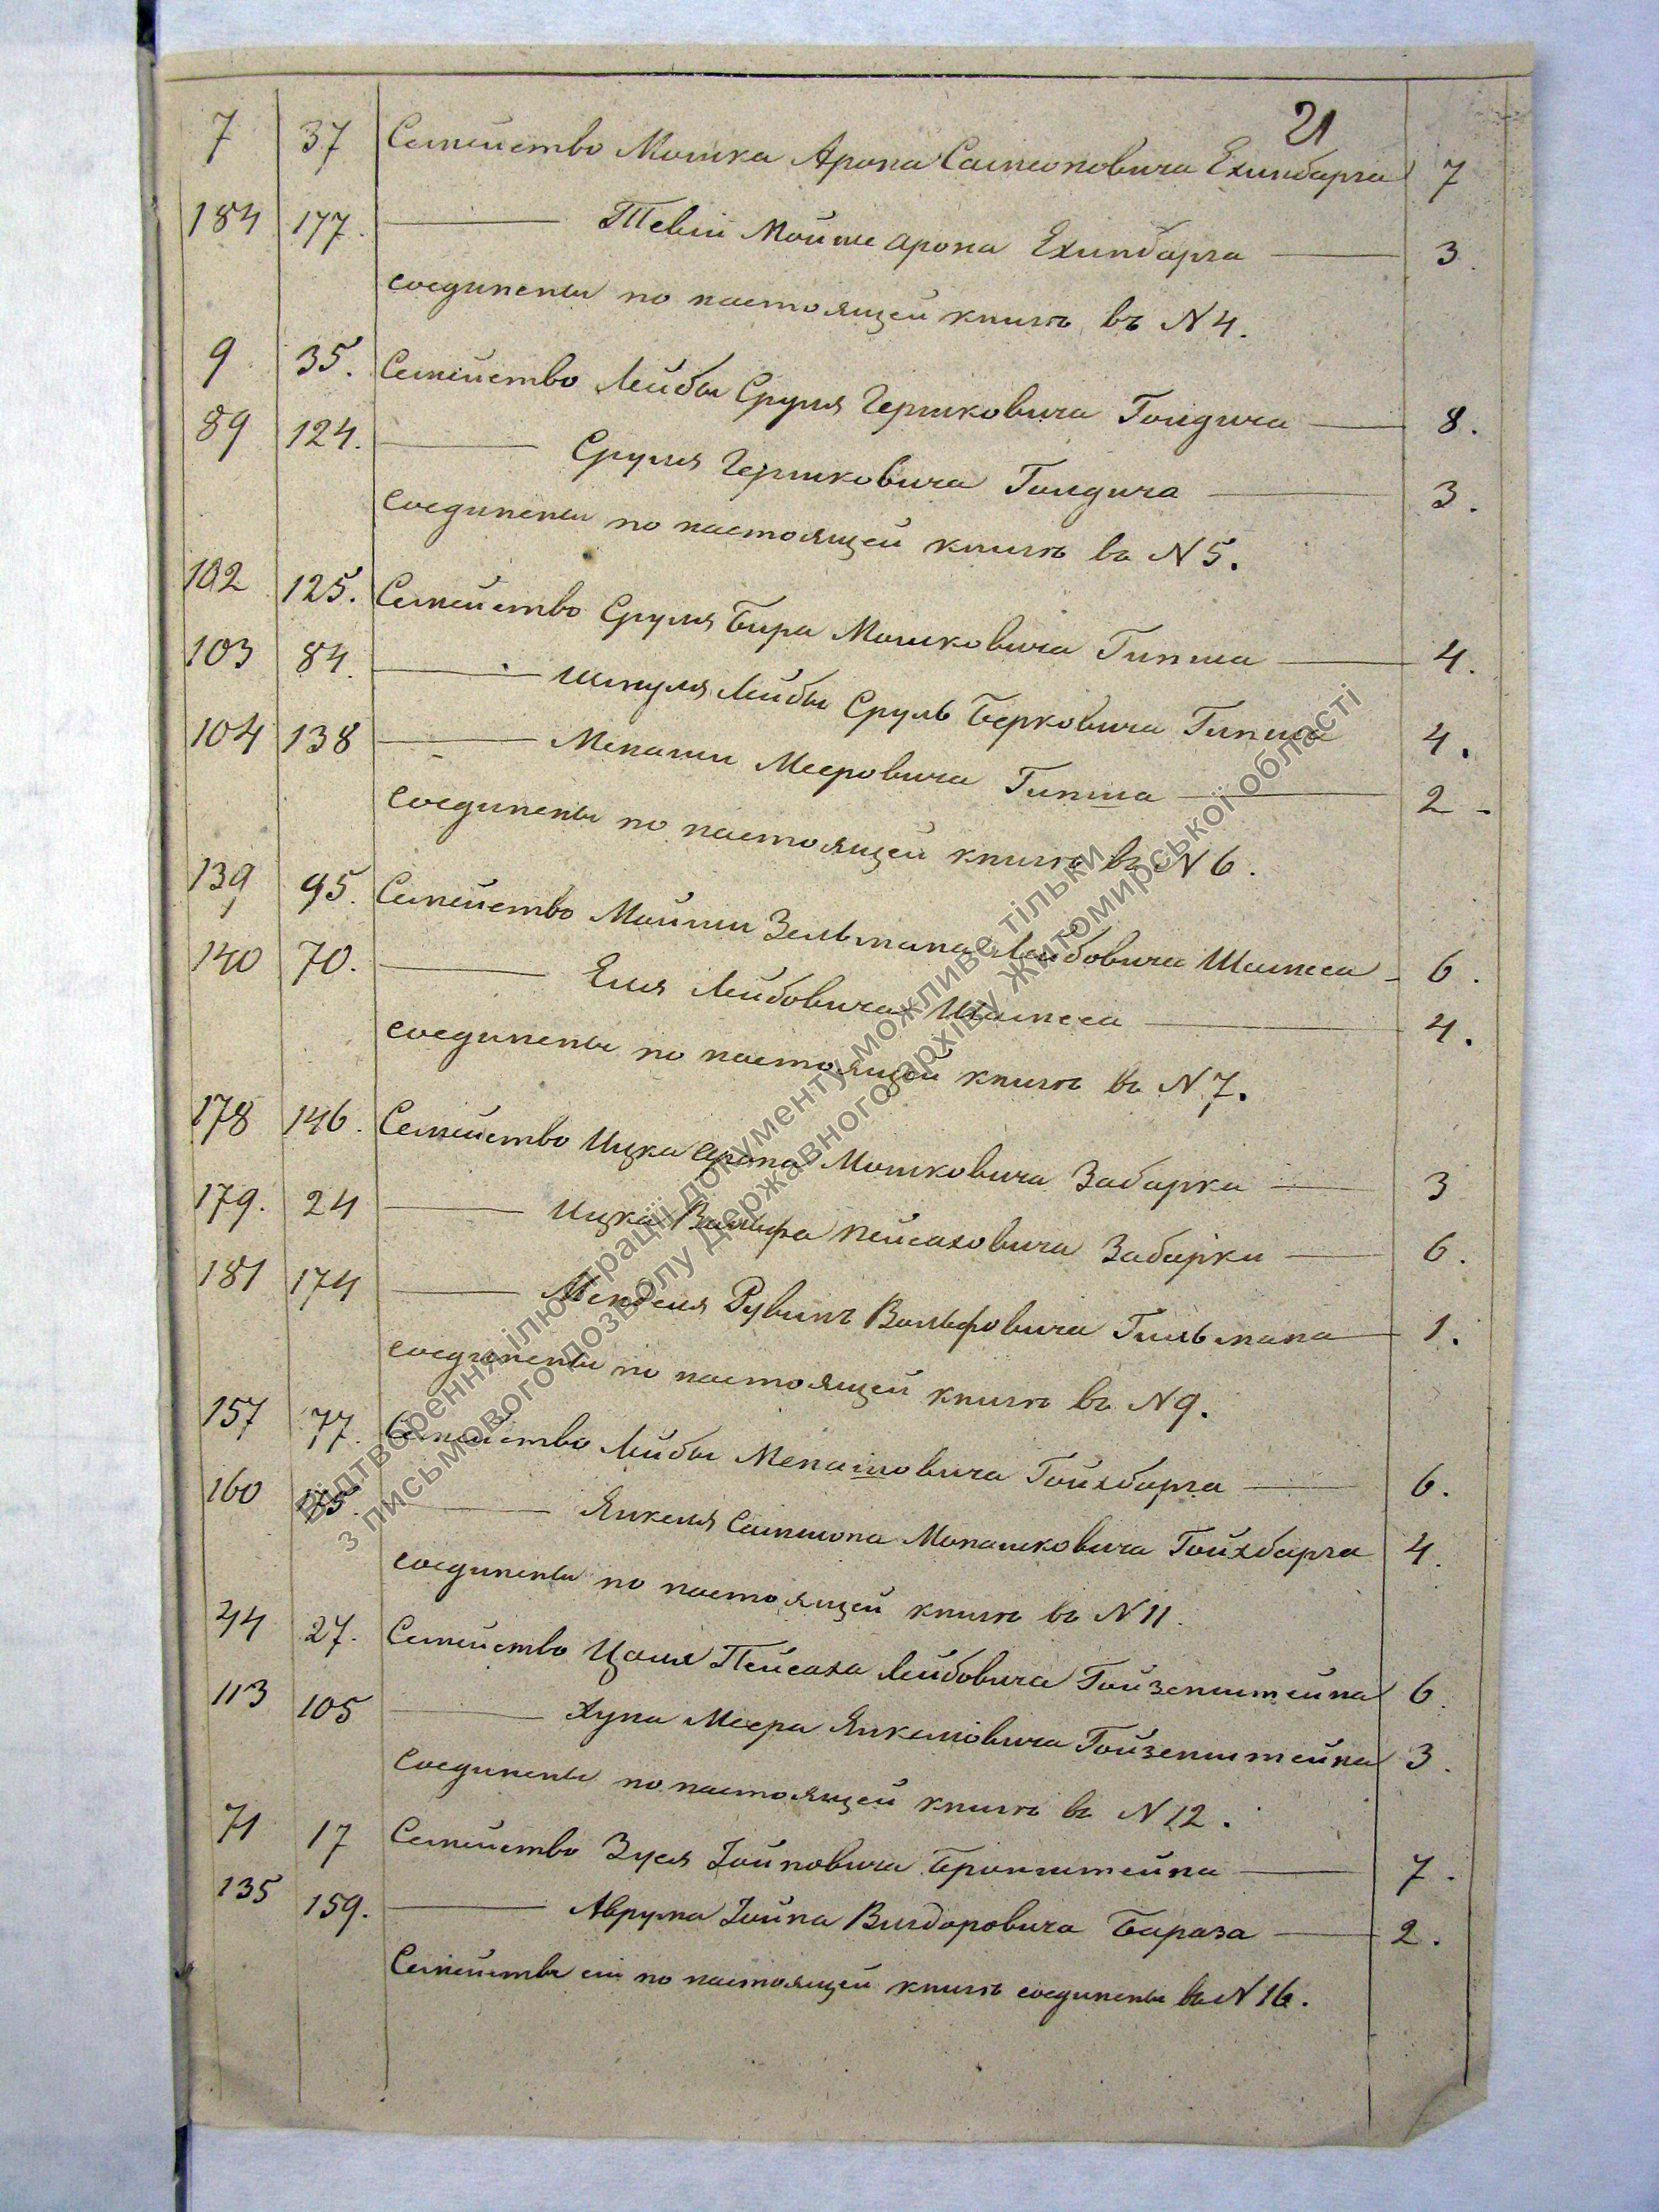 21
7 37 Семейство Мошка Арона Самсоновича Ехинбарга 7
184 177. — Тевiи Мойше Арона Ехинбарга — 3.
соединены по настоящей книгѣ въ N 4.
9 35. Семейство Лейбы Сруля Гершковича Голдича — 8.
89 124. — Сруля Гершковича Голдича — 3.
соединены по настоящей книгѣ въ N 5.
102 125. Семейство Сруля Бера Мошковича Гипша — 4.
103 84. — Шмуля Лейбы Сруль Берковича Гипша 4.
104 138 — Менаши Мееровича Гипша — 2 -
соединены по настоящей книгѣ въ N 6.
139 95. Семейство Мойши Зельмана Лейбовича Шамеса - 6.
140 70. — Еля Лейбовича Шамеса — 4.
соединены по настоящей книгѣ въ N 7.
178 146. Семейство Ицка Арона Мошковича Забарки — 3
179. 24 — Ицка Вольфа Пейсаховича Забарки — 6.
181 174 — Менделя Рувинъ Вольфовича Гильмана — 1.
соединены по настоящей книгѣ въ N 9.
157 77. Семейство Лейбы Менашовича Гойхбарга — 6.
160 — Янкеля Самшона Монашковича Гойхбарга 4.
соединены по настоящей книгѣ въ N 11.
44 27. Семейство Цаля Пейсаха Лейбовича Гойзенштейна 6.
113 105 — Хуна Меера Янкелiовича Гойзенштейна 3.
соединены по настоящей книгѣ въ N 12.
71 17 Семейство Зуся Iойновича Бронштейна — 7.
135 159. — Аврума Iойна Вигдоровича Бараза — 2.
Семейства сiи по настоящей книгѣ соединены въ N 16.
Відтворення ілюстрації документу можливе тільки
з письмового дозволу Державного архіву Житомирської області